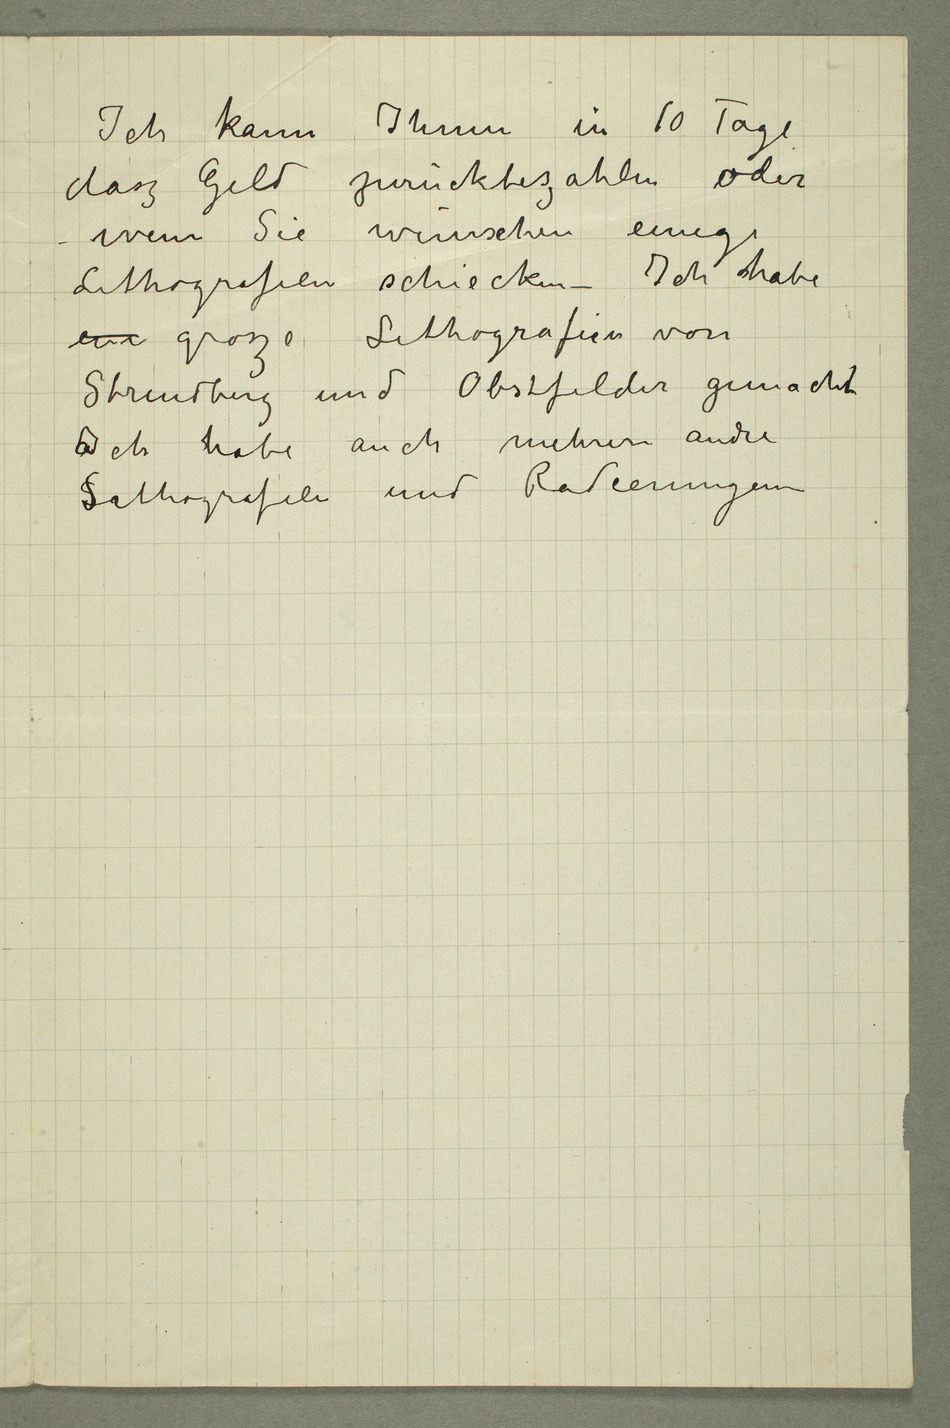 Ich kann Ihnen in 10 Tage
dasz Geld zurückbezahlen oder
– wenn Sie wünschen einige
Lithografien schiecken – Ich habe
eine grosze Lithografien von
Strindberg und Obstfelder gemacht
Ich habe auch mehrere andre
Lithografien und Radierungen –